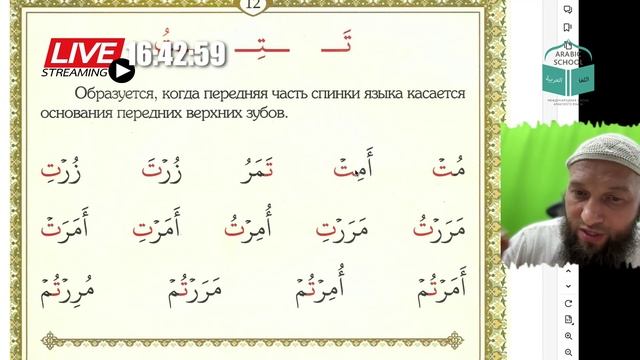 12
LIVE 16:42:59
STREAMING
تَـ ـتِـ ـتُ
ARABIC
SCHOOL
Образуется, когда передняя часть спинки языка касается
основания передних верхних зубов.
مُتْ أَمِتْ تَمَرُ زُرْتَ زُرْتِ
مَرَرْتُ مَرَرْتِ أُمِرْتُ أَمَرْتِ أَمَرَتْ
أَمَرْتُمْ أُمِرْتُمْ مَرَرْتُمْ مُرِرْتُمْ